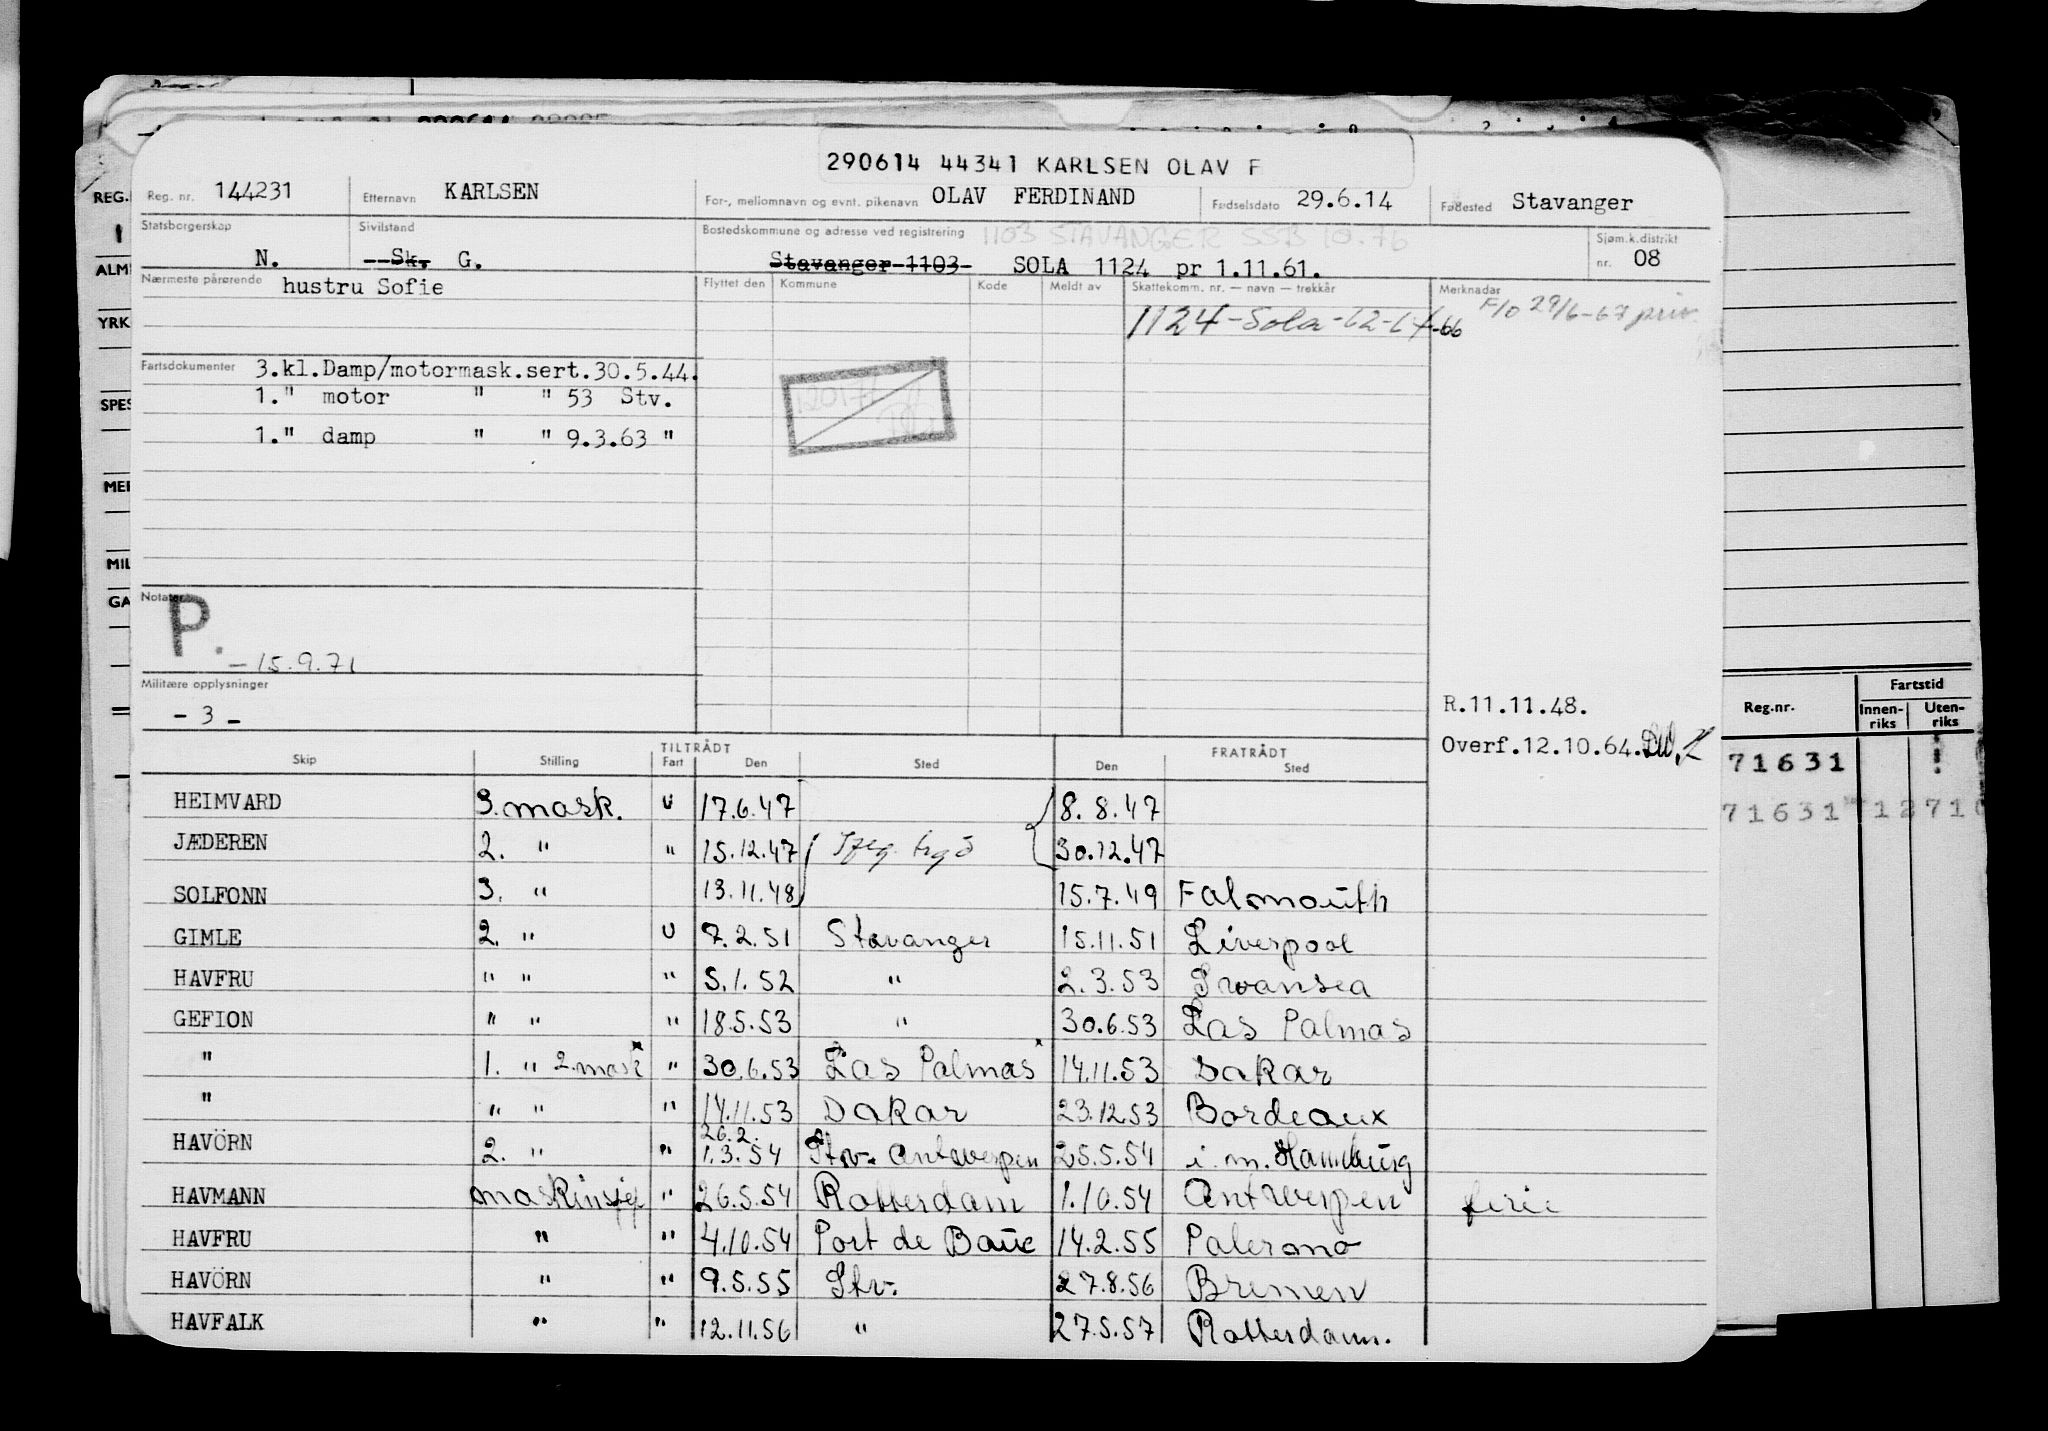 290614 44341 KARLSEN OLAV F
Reg. nr. 144231 Etternavn KARLSEN For-, mellomnavn og evnt. pikenavn OLAV FERDINAND Fødselsdato 29.6.14 Fødested Stavanger
Statsborgerskap N. Sivilstand Sk. G. Bostedskommune og adresse ved registrering 1103 STAVANGER SSB 10.76 Sjøm.k.distrikt
Stavanger 1103 SOLA 1124 pr 1.11.61. nr. 08
Nærmeste pårørende hustru Sofie Flyttet den Kommune Kode Meldt av Skattekomm. nr. — navn — trekkår Merknader
1124-Sola- -66 F/O 29/6-67 priv.
Fartsdokumenter 3.kl.Damp/motormask.sert.30.5.44.
1." motor " " 53 Stv.
1." damp " " 9.3.63 "
Notater
P.
-15.9.71
Militære opplysninger
- 3 -
R.11.11.48.
Overf.12.10.64.
TILTRÅDT FRATRÅDT
Skip Stilling Fart Den Sted Den Sted
HEIMVARD 3. mask. U 17.6.47 8.8.47
JÆDEREN 2. " " 15.12.47 30.12.47
SOLFONN 3. " 13.11.48 15.7.49 Falmouth
GIMLE 2. " U 7.2.51 Stavanger 15.11.51 Liverpool
HAVFRU " " " 5.1.52 " 2.3.53 Swansea
GEFION " " " 18.5.53 " 30.6.53 Las Palmas
" 1. " 2.mask " 30.6.53 Las Palmas 14.11.53 Dakar
" " " " 14.11.53 Dakar 23.12.53 Bordeaux
26.2.
HAVÖRN 2. " " 1.3.54 Stv. Antwerpen 25.5.54 i.m. Hamburg
HAVMANN maskinsjef " 26.5.54 Rotterdam 1.10.54 Antwerpen ferie
HAVFRU " " 4.10.54 Port de Bouc 14.2.55 Palermo
HAVÖRN " " 9.5.55 Stv. 27.8.56 Bremen
HAVFALK " " 12.11.56 " 27.5.57 Rotterdam.
REG.
ALM
YRK
SPES
MER
MIL
GA
Fartstid
Reg.nr. Innen-riks Uten-riks
71631
71631 12710